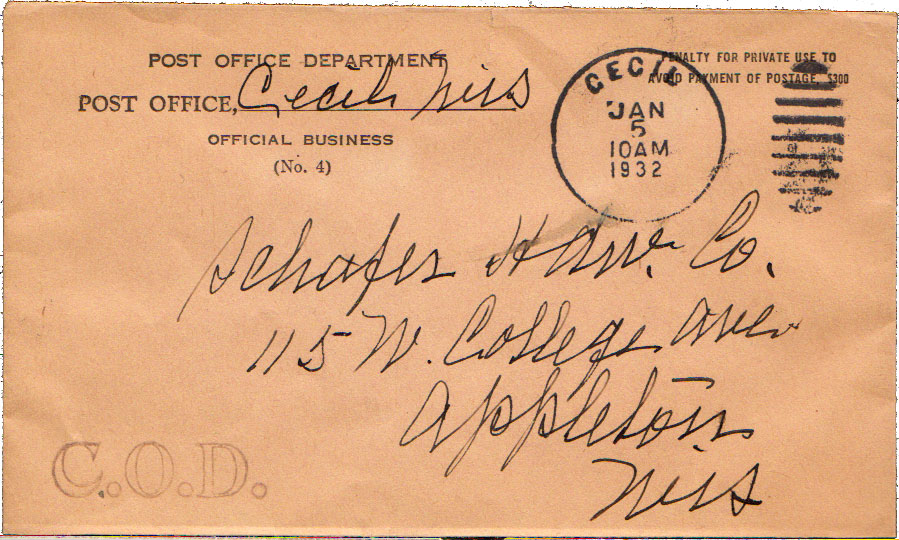 POST OFFICE DEPARTMENT
POST OFFICE, Cecil, Wis
OFFICIAL BUSINESS
(No. 4)
CECIL
JAN
5
10AM
1932
PENALTY FOR PRIVATE USE TO
AVOID PAYMENT OF POSTAGE, $300
Schafer Hdw. Co.
115 W. College Ave
Appleton
Wis
C.O.D.